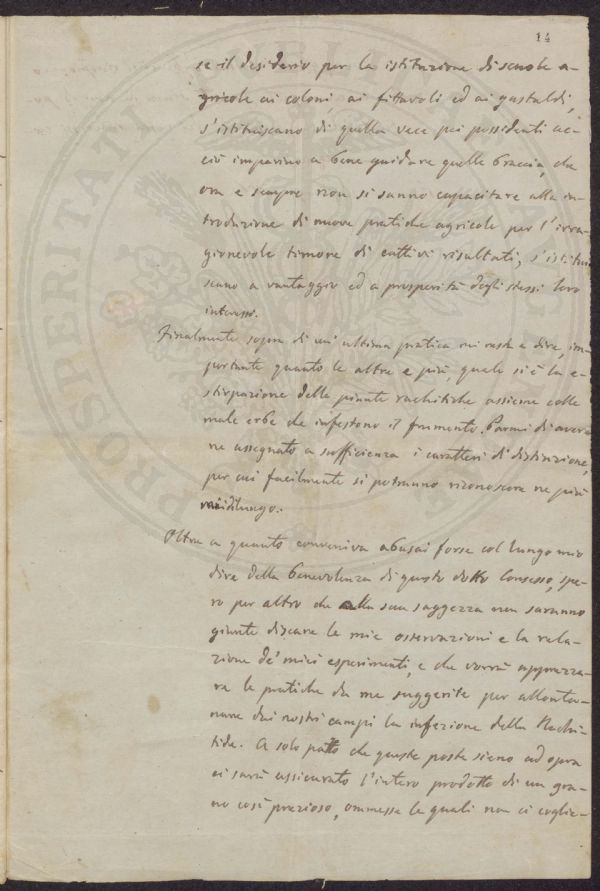 14
se il desiderio per la istituzione di scuole a-
gricole ai coloni ai fittavoli ed ai gastaldi,
s'istituiscano di quella vece pei possidenti ac-
ciò imparino a bene guidare quelle braccia, che
ora e sempre non si sanno capacitare alla in-
troduzione di nuove pratiche agricole per l'irra-
gionevole timore di cattivi risultati, s'istitui
scano a vantaggio ed a prosperità degli stessi loro
interessi.
Finalmente sopra di un'ultima pratica mi resta a dire, im-
portante quanto le altre e più, quale si è la e-
stirpazione delle piante rachitiche assieme colle
male erbe che infestono il frumento. Parmi di aver
ne assegnato a sufficienza i caratteri di distinzione,
per cui facilmente si potranno riconoscere ne più
mi dilungo.
Oltre a quanto conveniva abusai forse col lungo mio
dire della benevolenza di questo dotto Consesso, spe-
ro per altro che alla sua saggezza non saranno
giunte discare le mie osservazioni e la rela-
zione de' miei esperimenti, e che vorrà apprezza-
re le pratiche da me suggerite per allonta-
nare dai nostri campi la infezione della Rachi-
tide. A solo patto che queste poste sieno ad opera
ci sarà assicurato l'intero prodotto di un gra-
no così prezioso, ommesse le quali non ci coglie-
PROSPERITATI